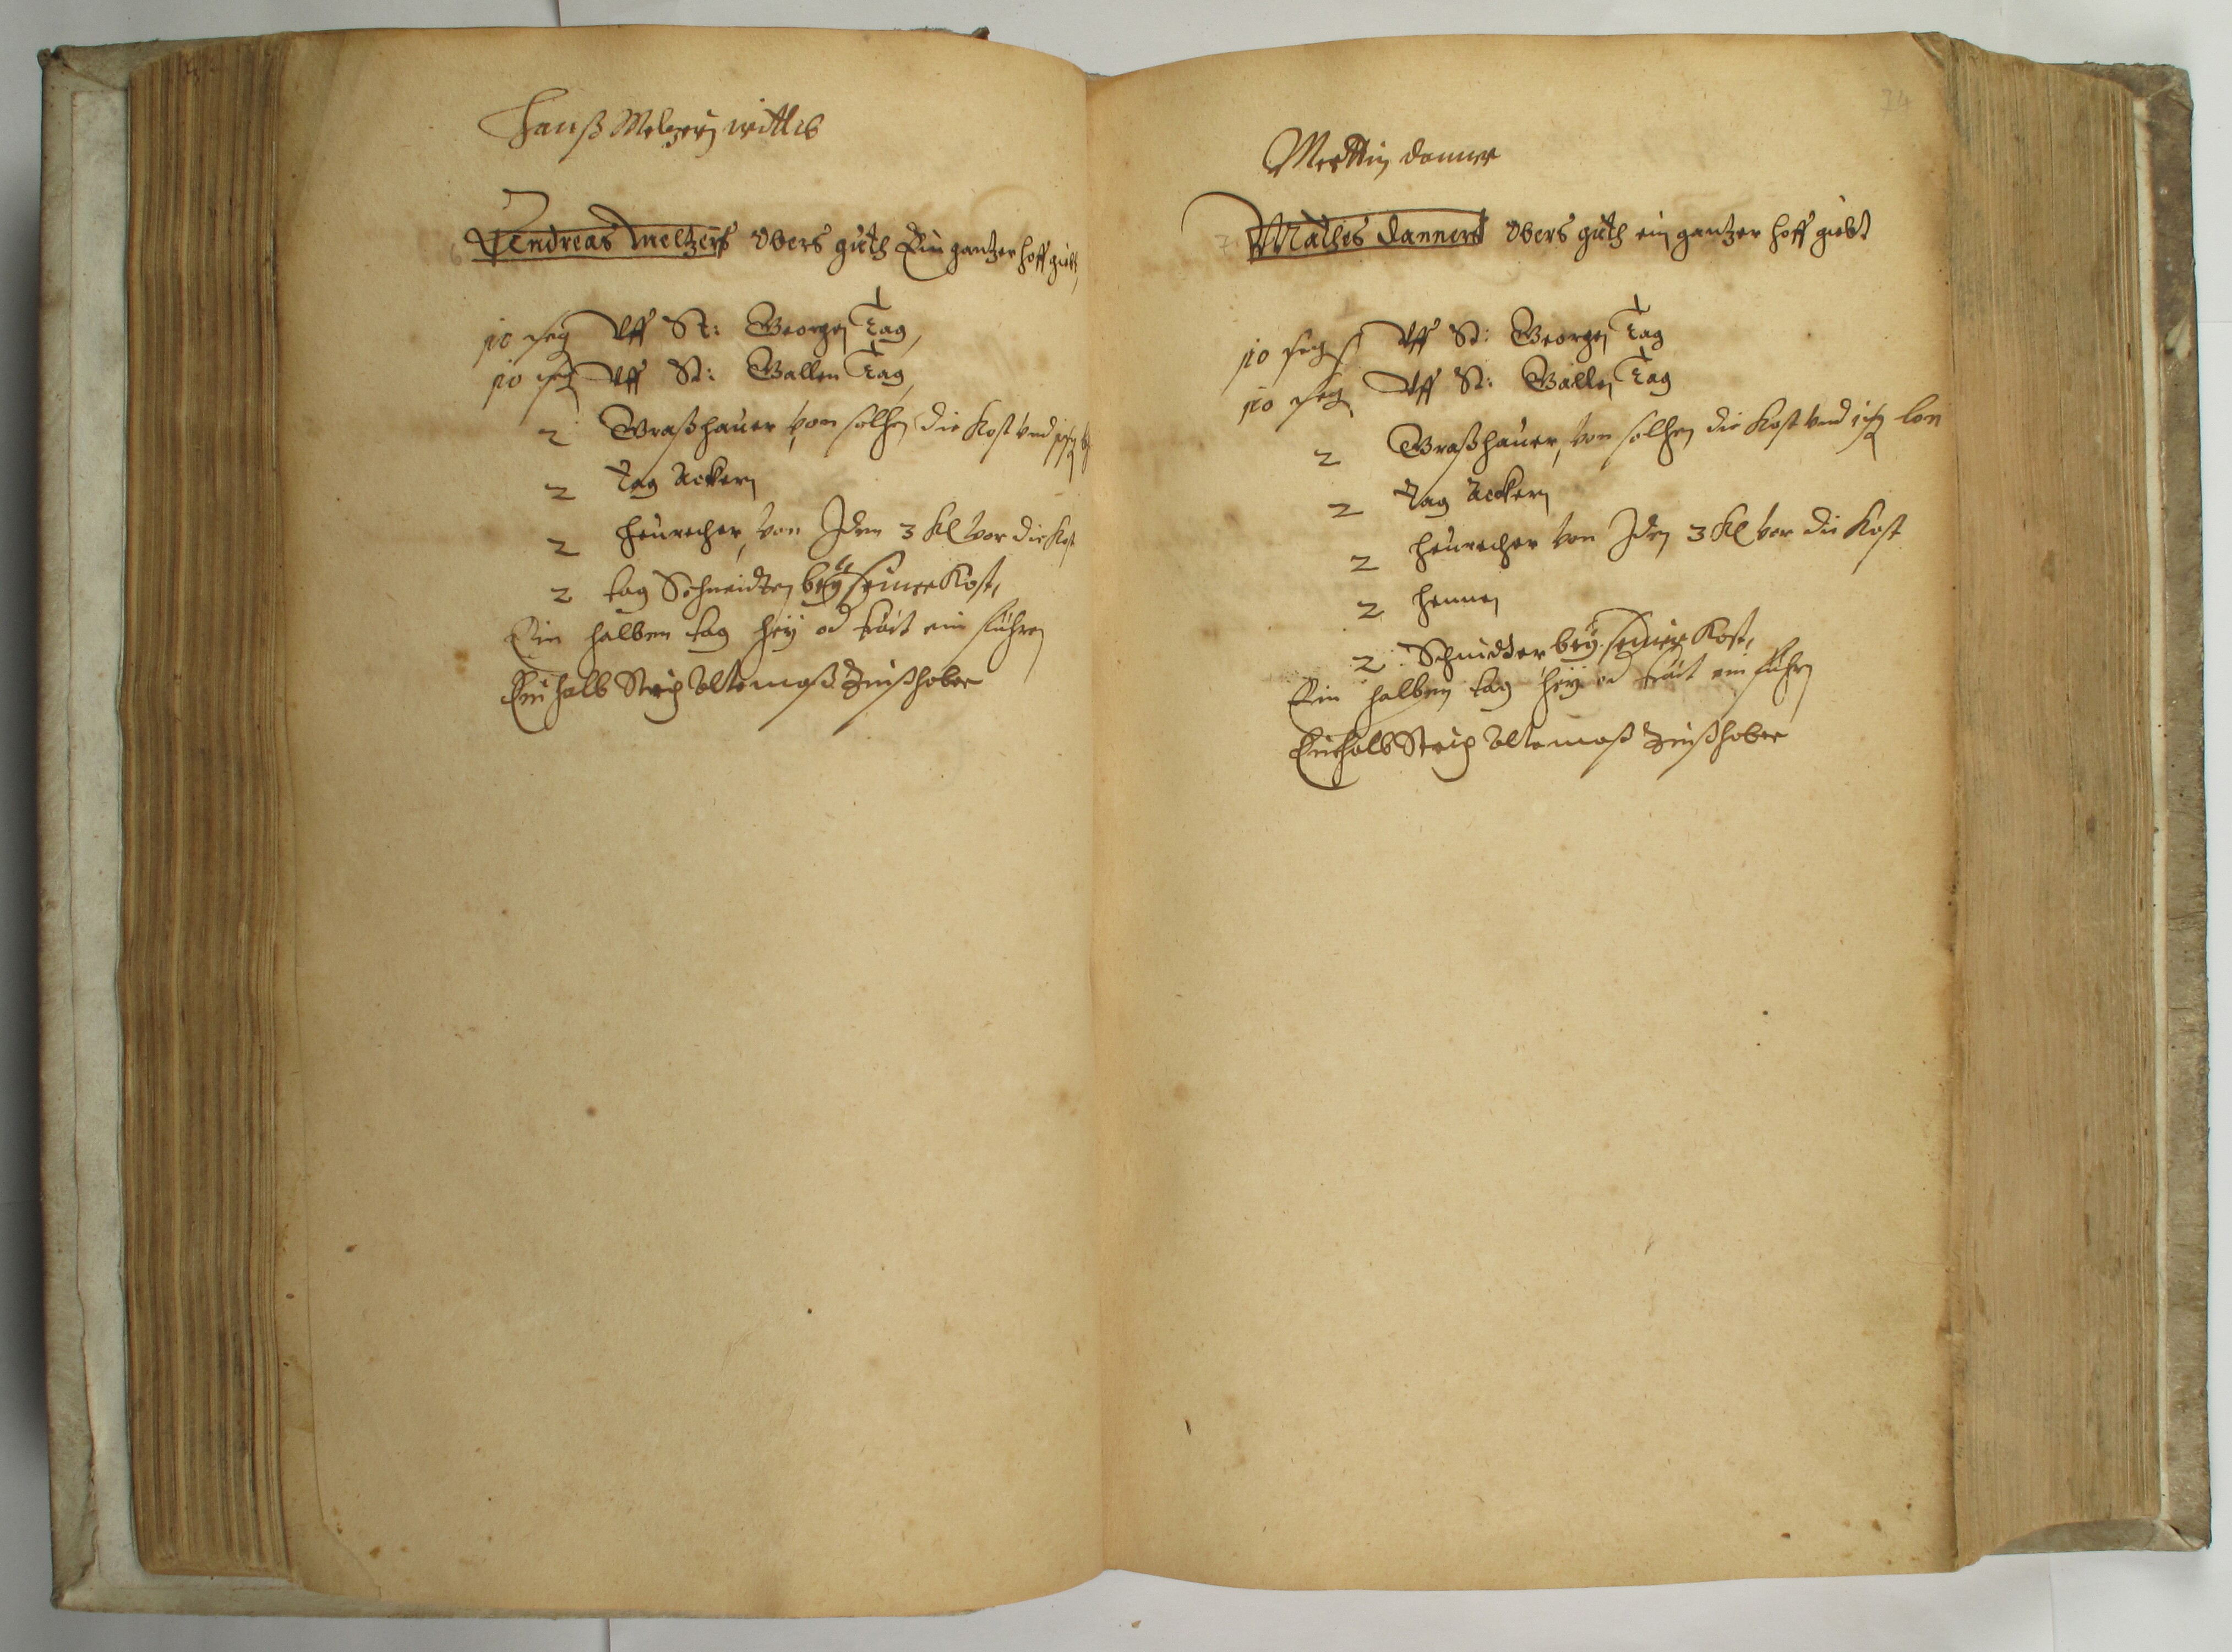 Hanß Meltzerß wittib
6 Andreas Meltzers Obers guth Ein gantzer hoff giebt
10 sg Uff St: Georgen Tag
10 sg Uff St: Gallen Tag
2 Graßhauer, von solchen die Kost und
2 Tag Ackern
2 heurecher, von Iden 3 Kl vor die Kost
2 tag Schneidten bey seiner Kost,
Ein halben tag hey od trait ein führen
Ein halb Strich Altemaß Zinßhaber
74
Merttin danner
7 Mathes Danners Obers guth ein gantzer hoff giebt
10 sg Uff St: Georgen Tag
10 sg Uff St: Gallen Tag
2 Graßhauer, von solchen die Kost und lon
2 Tag Ackern
2 heurecher von Iden 3 Kl vor die Kost
2 hennen
2 Schnidter bey seiner Kost,
Ein halben tag hey od trait ein führen
Ein halb Strich Altemaß Zinßhaber